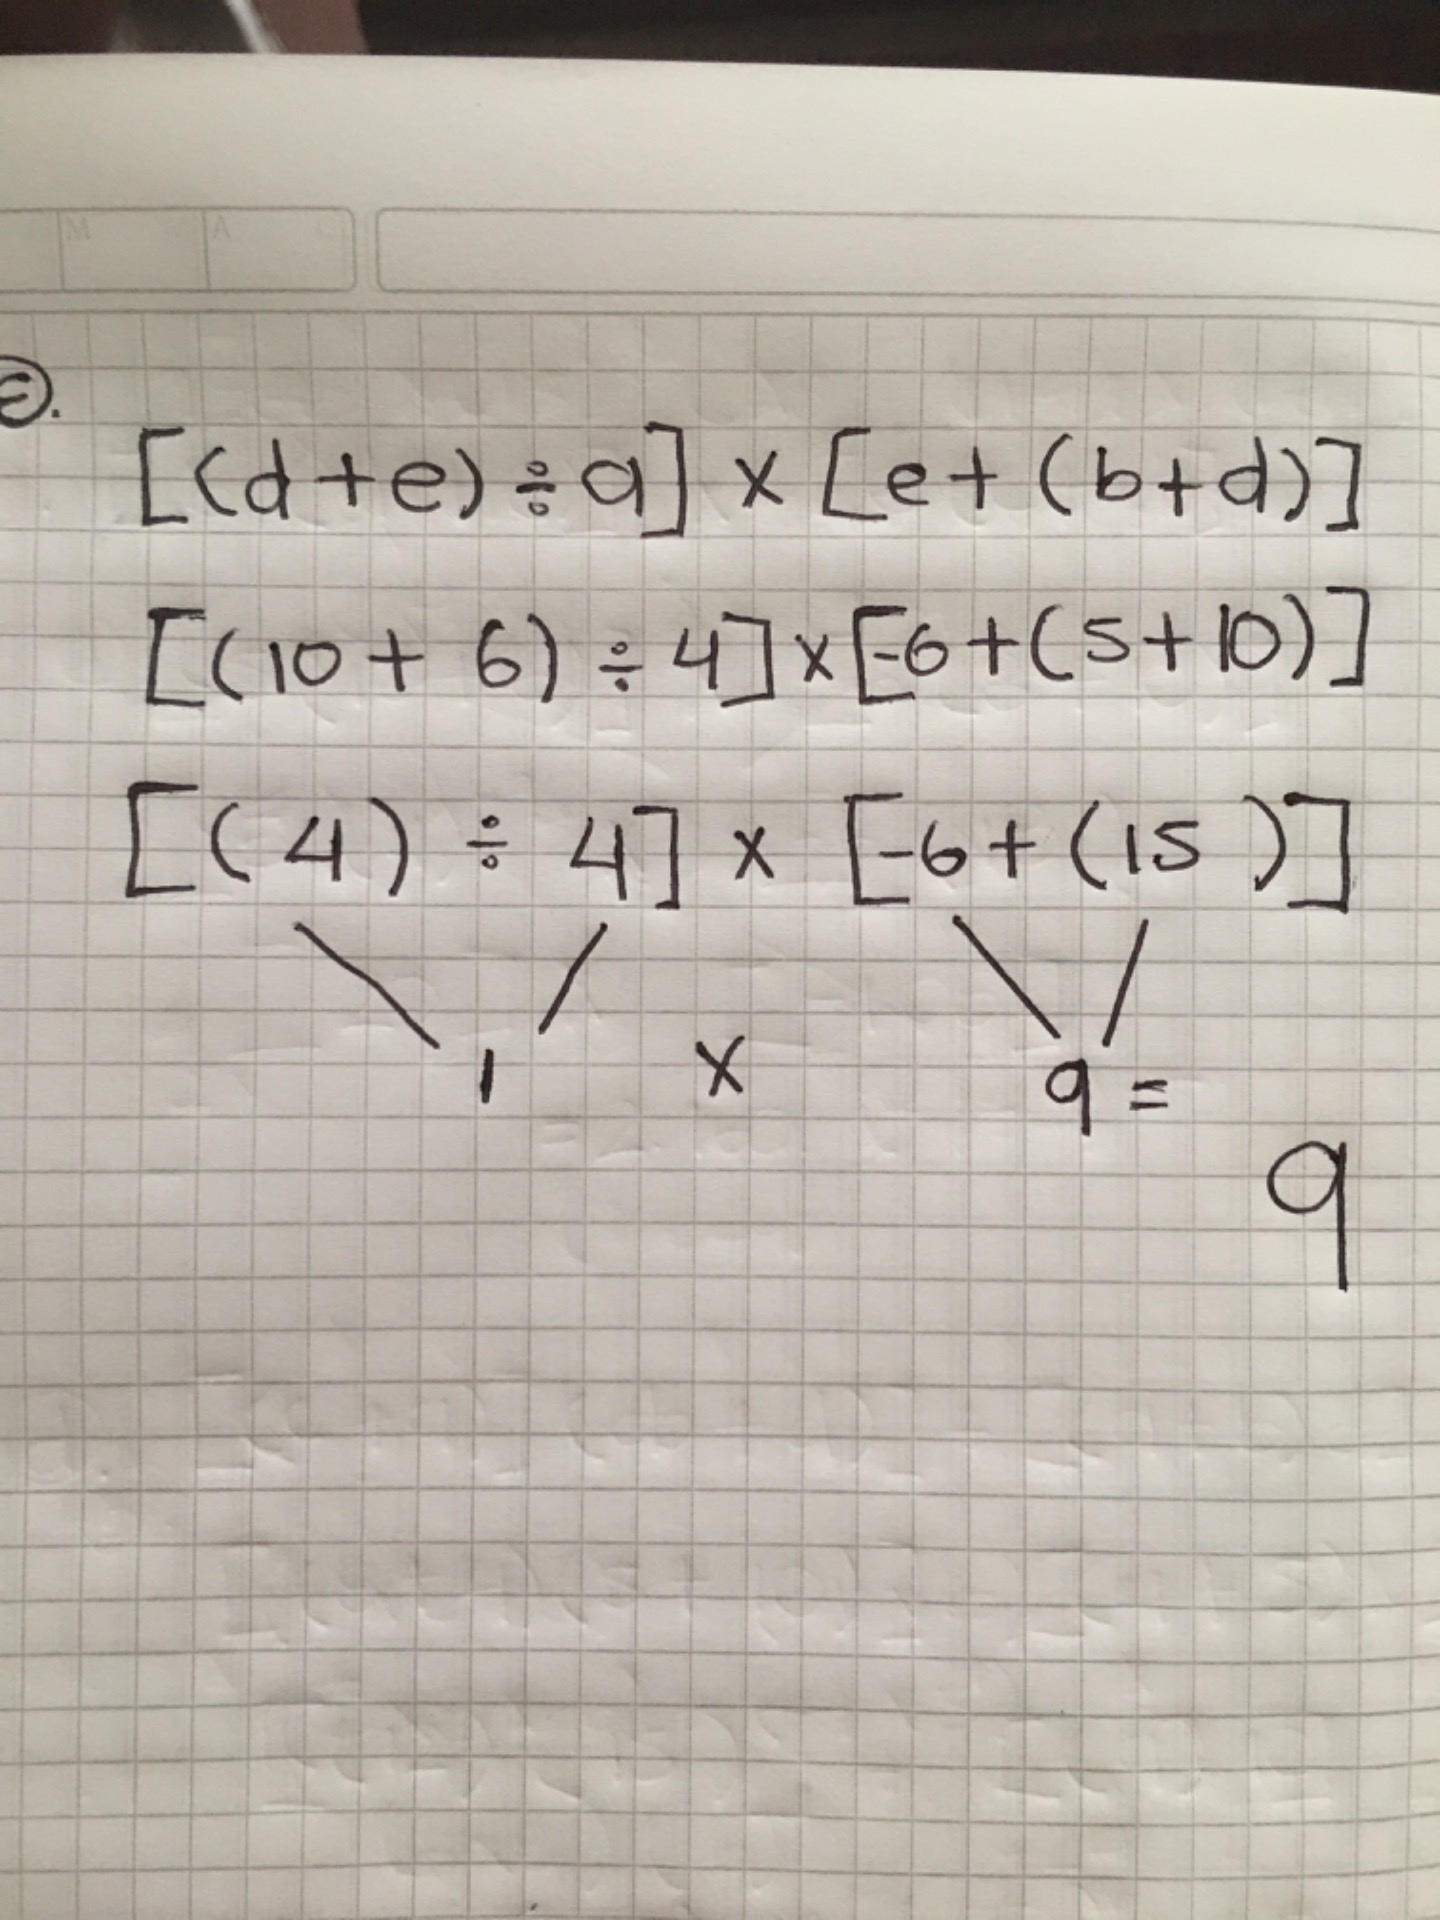 M A
E.
[(d+e)÷a] x [e+(b+d)]
[(10+ 6)÷4]x[-6+(5+10)]
[(4) ÷ 4] x [-6+(15 )]
1 x 9 =
9